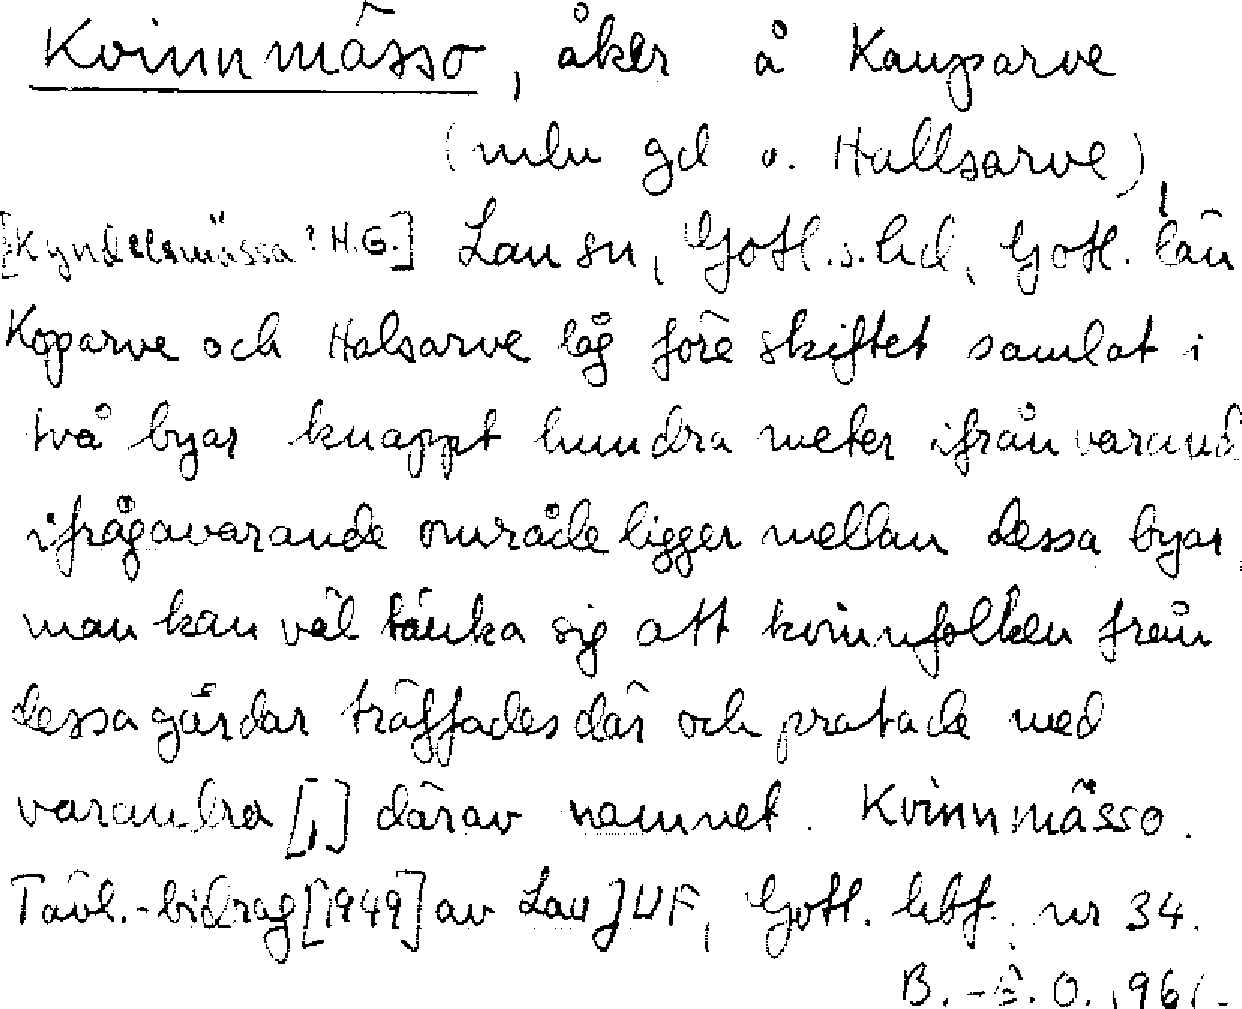 Kvinnmässo, åker å Kauparve
(mlu gd o. Hallsarve),
[Kyndelsmässa? H.G.] Lau sn, Gotl. s. hd, Gotl. län
Koparve och Halsarve låg före skiftet samlat i
två byar knappt hundra meter ifrån varand
ifrågavarande område ligger mellan dessa byar,
man kan väl tänka sig att kvinnfolken från
dessa gårdar träffades där och pratade med
varandra [,] därav namnet. Kvinnmässo.
Tävl.-bidrag [1949] av Lau JUF, Gotl. hbf. nr 34.
B.-E. O. 1961.